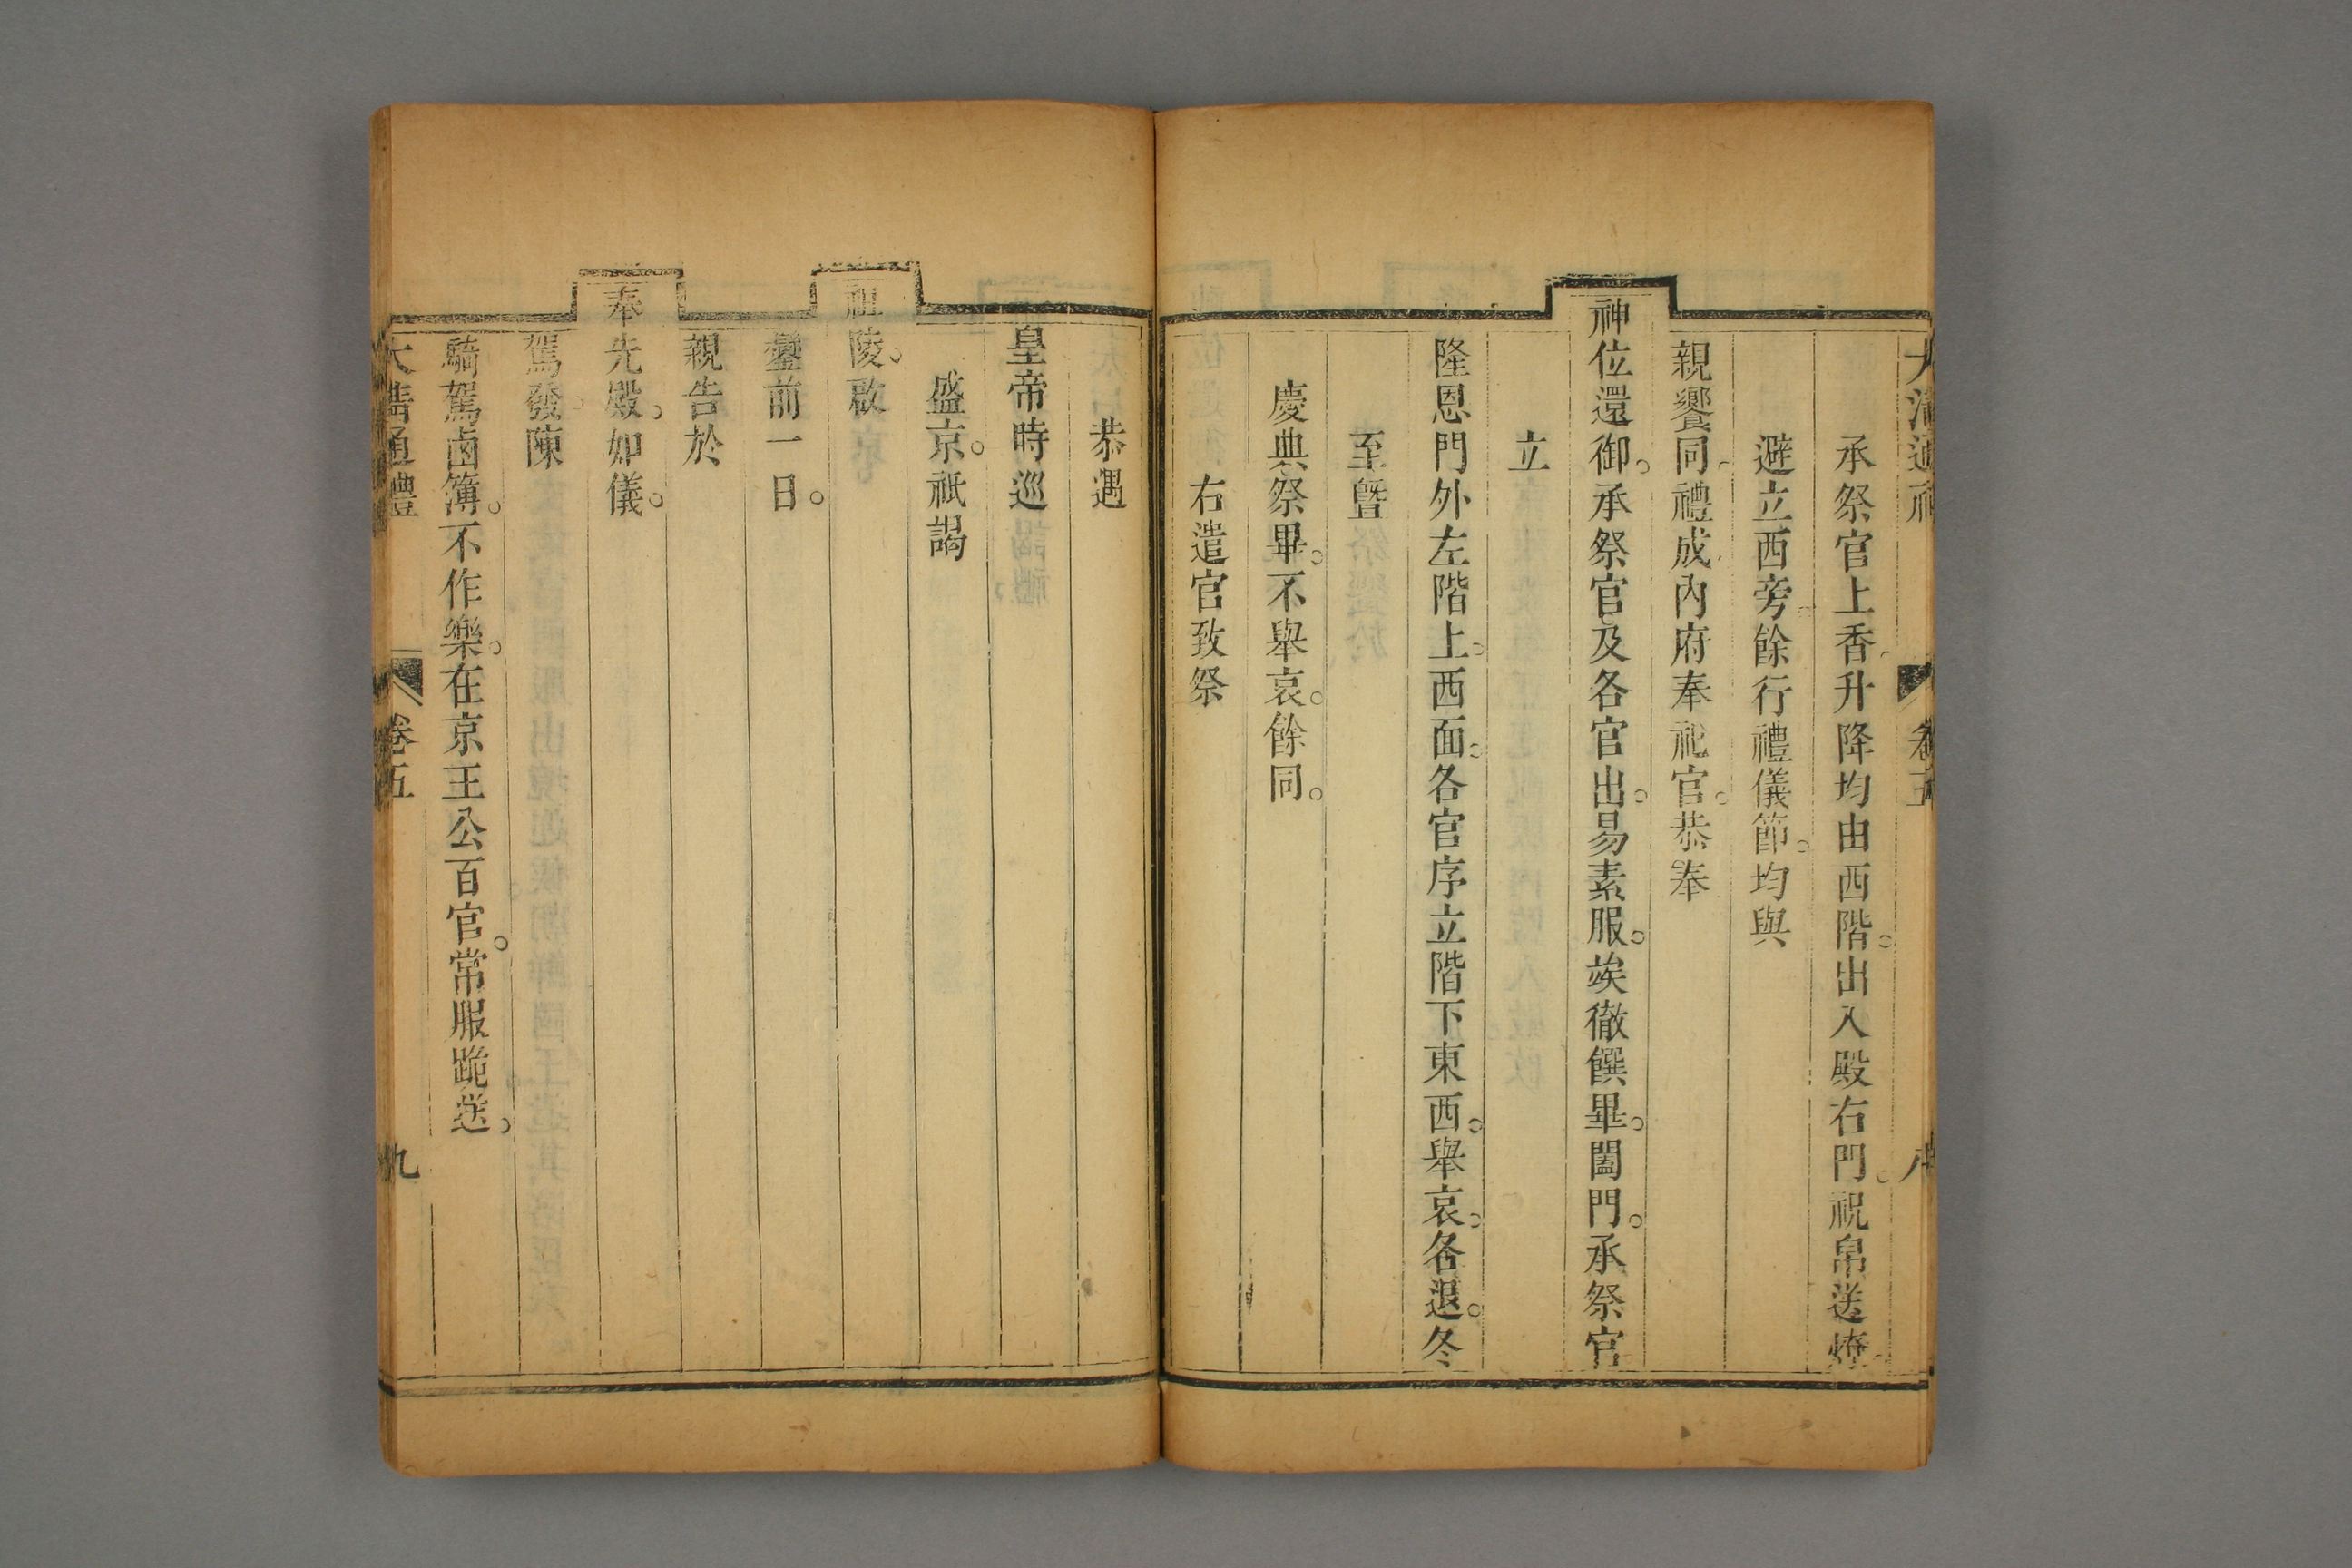 大清通禮 卷五 八
承祭官上香。升降均由西階。出入殿右門。祝帛送燎。
避立西旁。餘行禮儀節。均與
親饗同。禮成。內府奉祀官。恭奉
神位還御。承祭官及各官出。易素服。竢徹饌畢。闔門。承祭官
立
隆恩門外左階上。西面。各官序立階下東西。舉哀。各退。冬
至曁
慶典祭畢。不舉哀。餘同。
右遣官致祭
恭遇
皇帝時巡
盛京。祇謁
祖陵。啟
鑾前一日。
親告於
奉先殿。如儀。
駕發。陳
騎駕鹵簿。不作樂。在京王公百官。常服跪送。
大清通禮 卷五 九